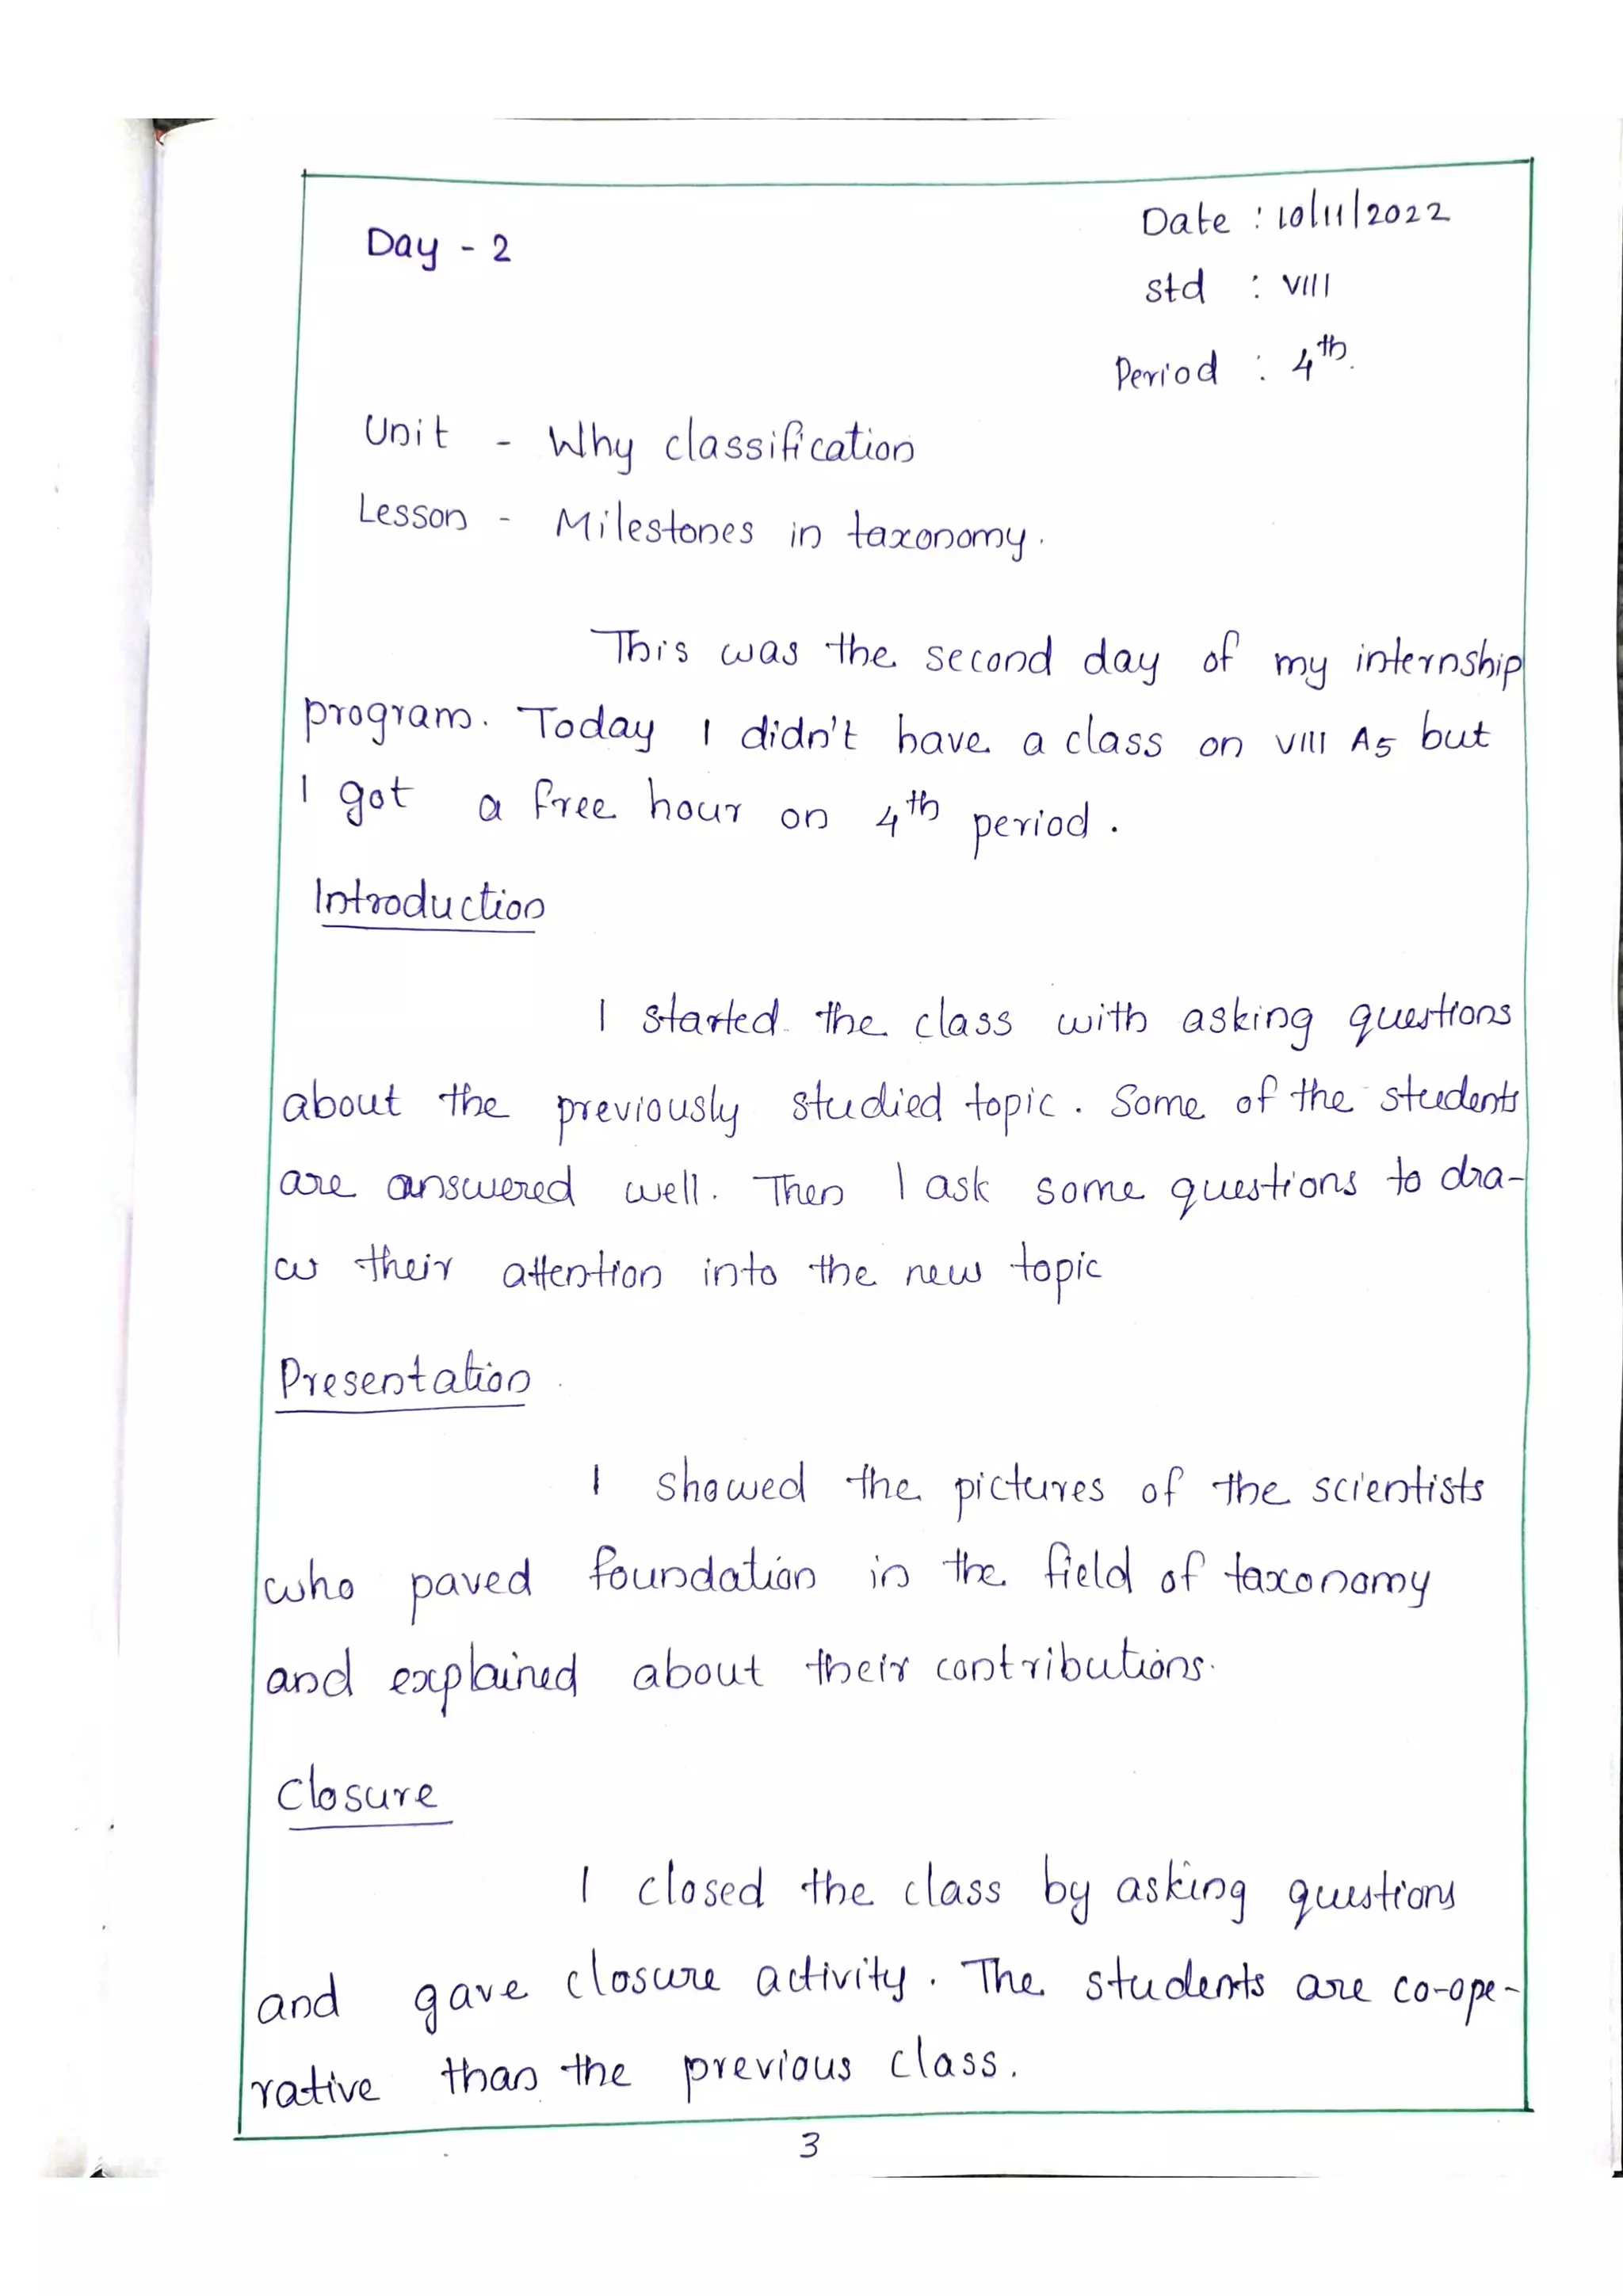 Day - 2
Date : 10/11/2022
std : VIII
Period : 4th.
Unit - Why classification
Lesson - Milestones in taxonomy.
This was the second day of my internship
program. Today I didn't have a class on VIII A5 but
I got a free hour on 4th period.
Introduction
I started the class with asking questions
about the previously studied topic. Some of the students
are answered well. Then I ask some questions to dra-
w their attention into the new topic
Presentation
I showed the pictures of the scientists
who paved foundation in the field of taxonomy
and explained about their contributions.
Closure
I closed the class by asking questions
and gave closure activity. The students are co-ope-
rative than the previous class.
3